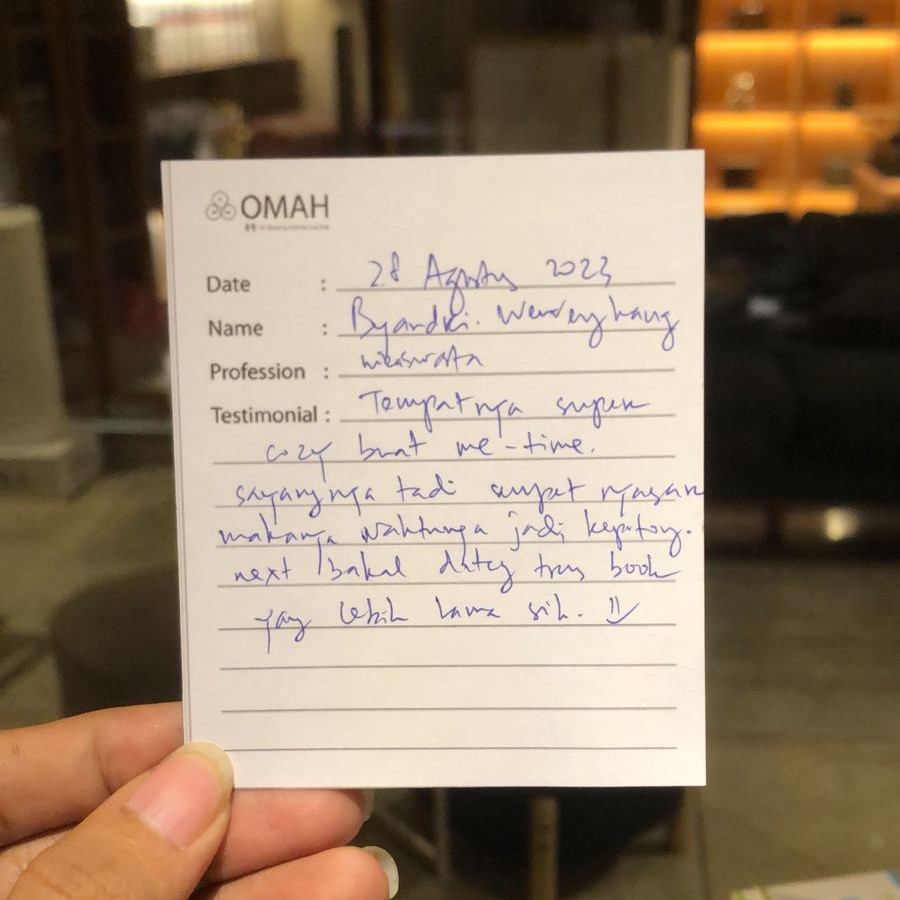 OMAH
Date : 28 Agustus 2023
Name : Byandri.
Profession : wiraswasta
Testimonial : Tempatnya super
cozy buat me-time.
sayangnya tadi sempat nyasar
makanya waktunya jadi kepotong.
next bakal dateng trus book
yang lebih lama sih.